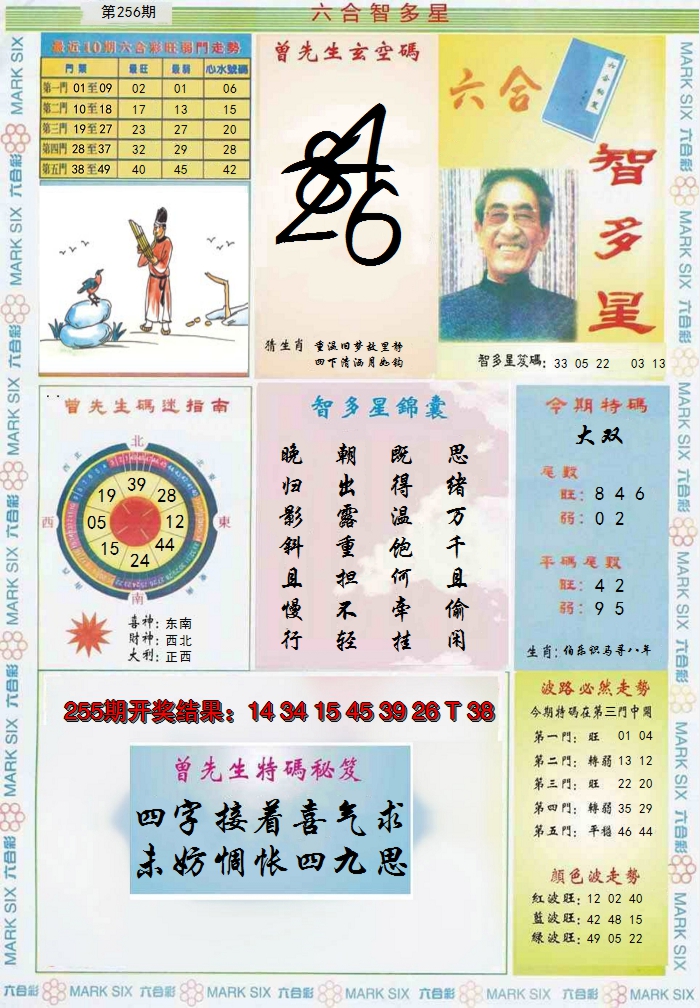 第256期
六合智多星
最近10期六合彩旺弱門走勢
門類 最旺 最弱 心水號碼
第一門 01至09 02 01 06
第二門 10至18 17 13 15
第三門 19至27 23 27 20
第四門 28至37 32 29 28
第五門 38至49 40 45 42
曾先生玄空碼
猜生肖 重温旧梦故里静
四下清涵月如钩
六合
智多星
智多星笈碼: 33 05 22 03 13
曾先生碼迷指南
北
西北
東北
西
東
南
39
28
12
44
24
15
05
19
喜神: 东南
财神: 西北
大利: 正西
智多星錦囊
思绪万千且偷闲
既得温饱何牵挂
朝出露重担不轻
晚归影斜且慢行
今期特碼
大双
尾數
旺: 8 4 6
弱: 0 2
平碼尾數
旺: 4 2
弱: 9 5
生肖: 伯乐识马寻八年
255期开奖结果: 14 34 15 45 39 26 T 38
曾先生特碼秘笈
四字接着喜气求
未妨惆怅四九思
波路必然走势
今期特碼在第三門中開
第一門: 旺 01 04
第二門: 轉弱 13 12
第三門: 旺 22 20
第四門: 轉弱 35 29
第五門: 平穩 46 44
顏色波走勢
紅波旺: 12 02 40
藍波旺: 42 48 15
綠波旺: 49 05 22
六合彩 MARK SIX 六合彩 MARK SIX 六合彩 MARK SIX 六合彩 MARK SIX 六合彩 MARK SIX